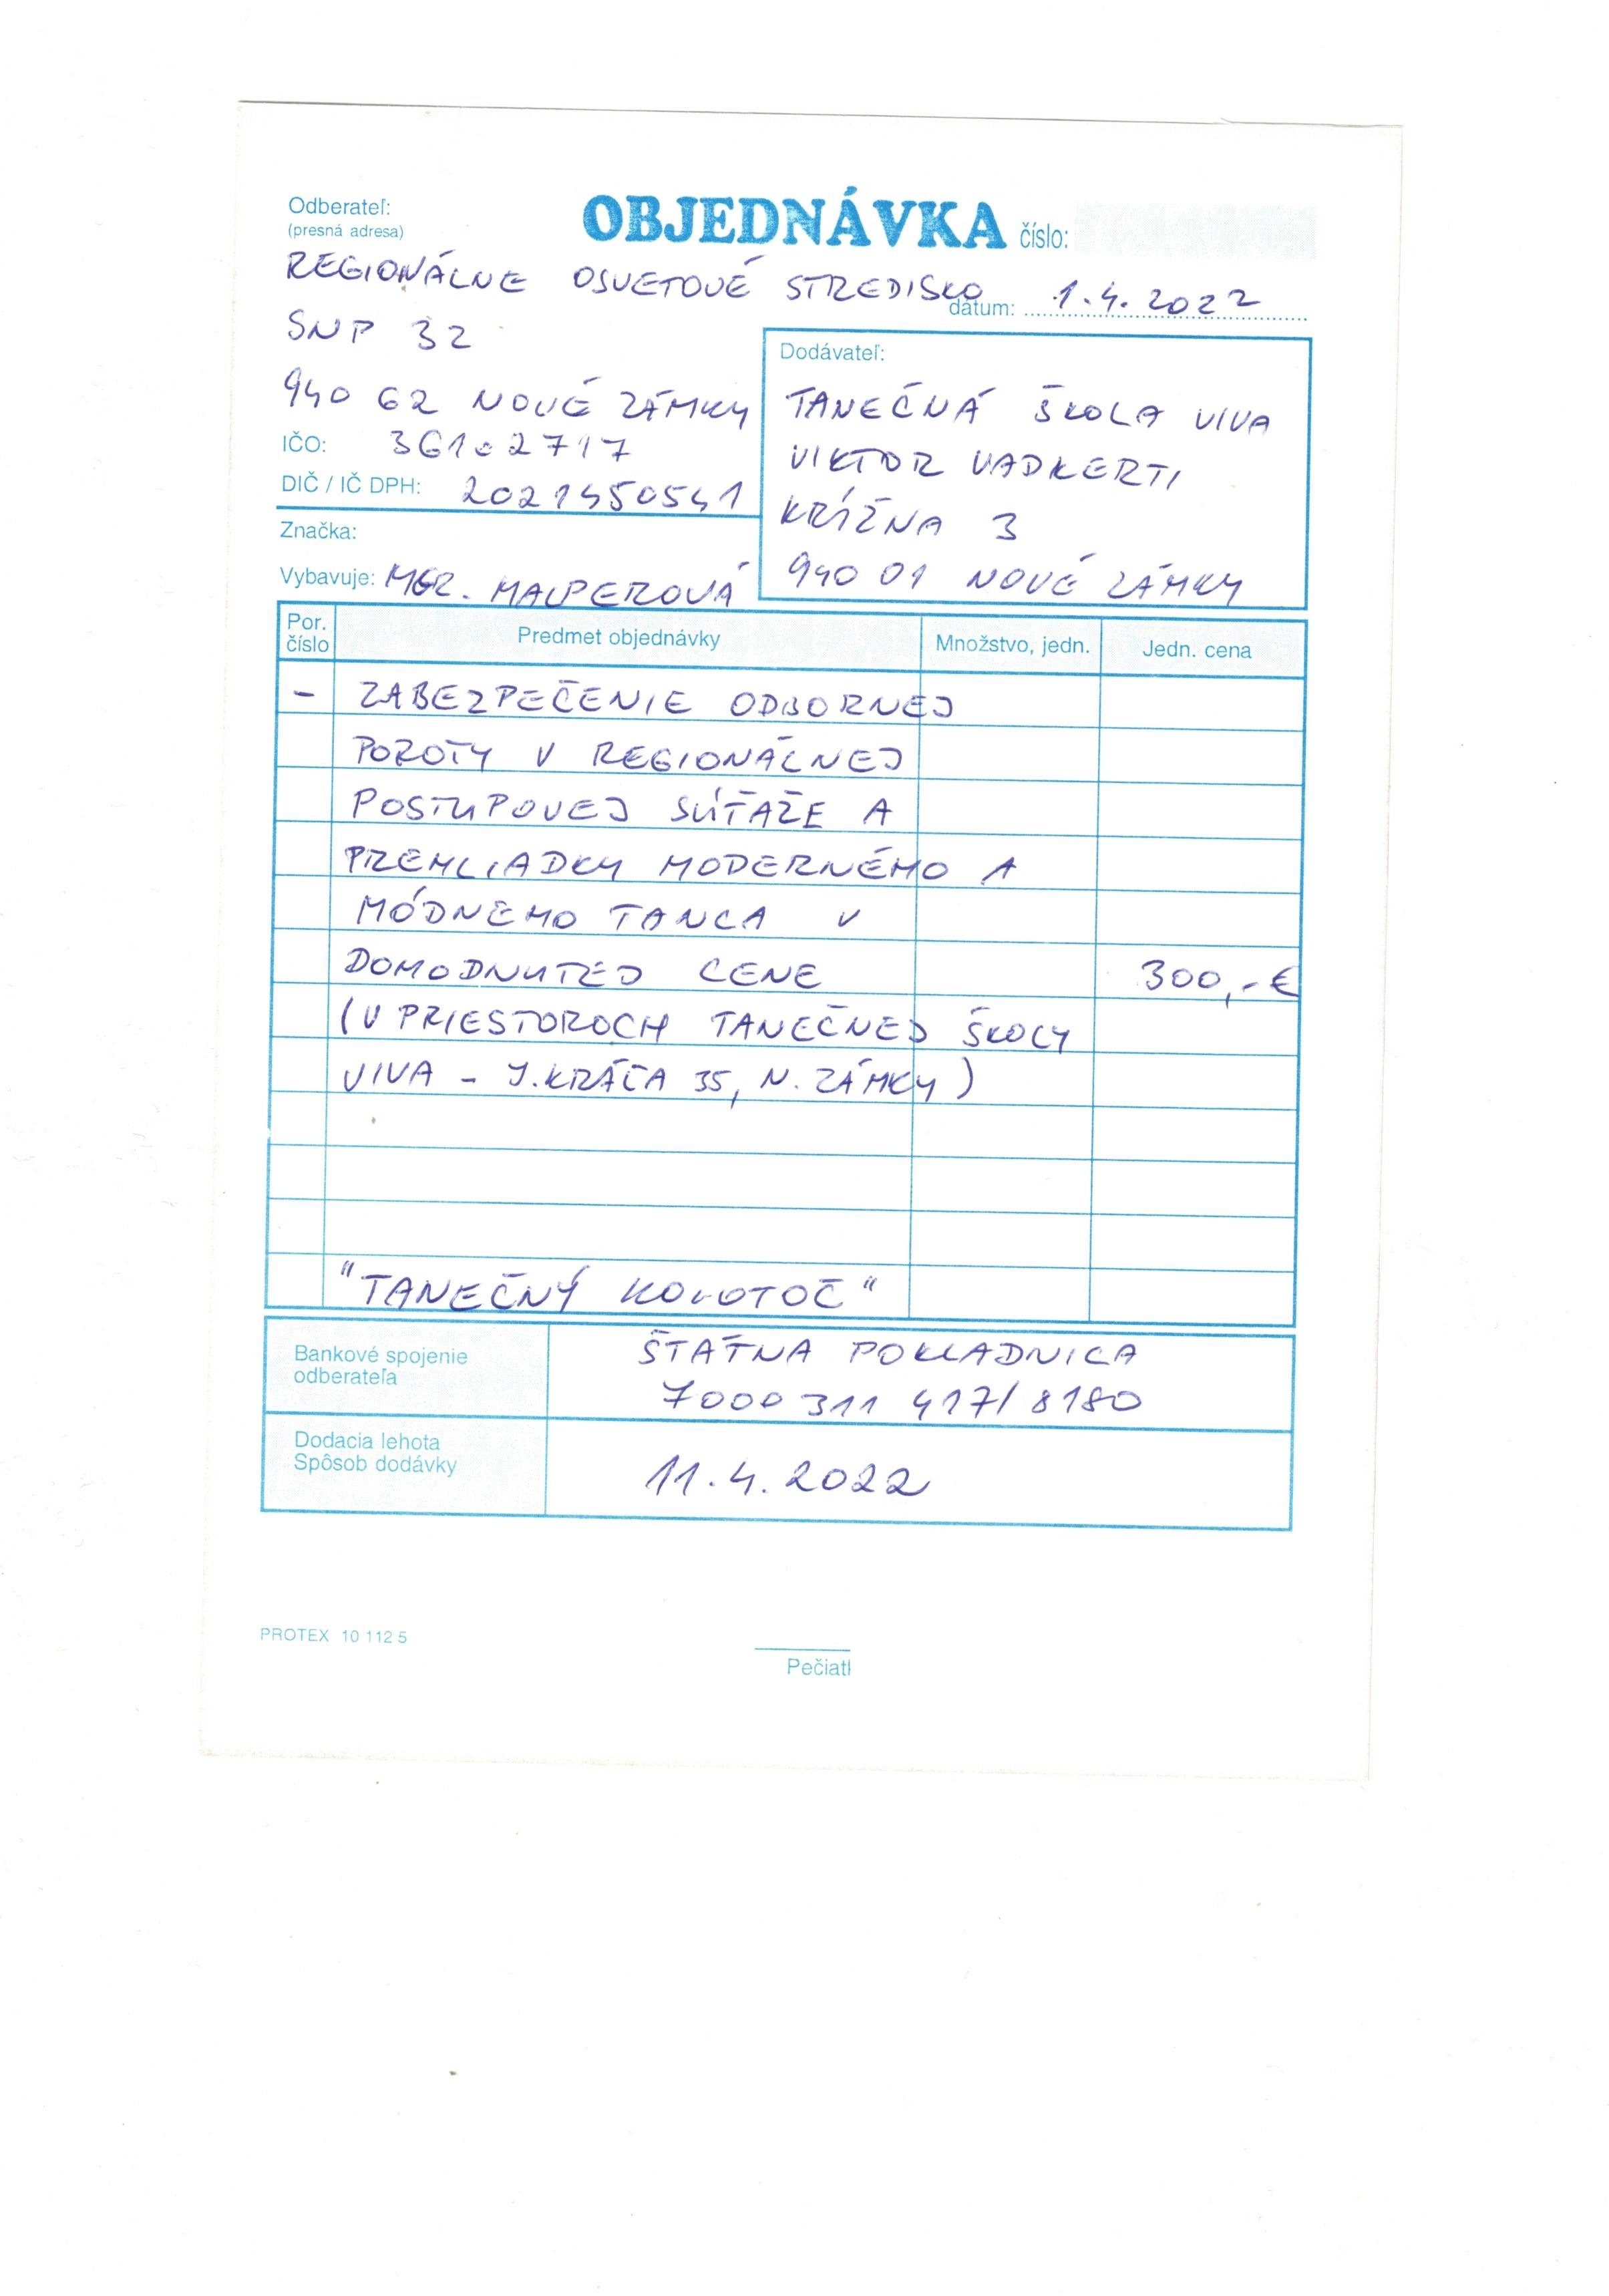 Odberateľ:
(presná adresa)
OBJEDNÁVKA číslo:
REGIONÁLNE OSVETOVÉ STREDISKO
dátum: 1.4.2022
SNP 32
940 62 NOVÉ ZÁMKY
IČO: 36102717
DIČ / IČ DPH: 2021450541
Značka:
Vybavuje: MGR. HALPEROVÁ
Dodávateľ:
TANEČNÁ ŠKOLA VIVA
VIKTOR VADKERTI
KRÍŽNA 3
940 01 NOVÉ ZÁMKY
Por. číslo Predmet objednávky Množstvo, jedn. Jedn. cena
- ZABEZPEČENIE ODBORNEJ
POROTY V REGIONÁLNEJ
POSTUPOVEJ SÚŤAŽE A
PREHLIADKY MODERNÉHO A
MÓDNEHO TANCA V
DOHODNUTEJ CENE 300,-€
(V PRIESTOROCH TANEČNEJ ŠKOLY
VIVA - J. KRÁĽA 35, N. ZÁMKY)
"TANEČNÝ KOLOTOČ"
Bankové spojenie
odberateľa
ŠTÁTNA POKLADNICA
7000 311 417/8180
Dodacia lehota
Spôsob dodávky
11.4.2022
PROTEX 10 112 5
Pečiatk